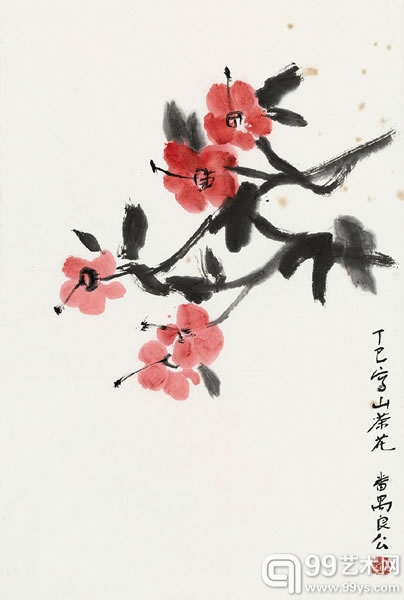 丁巳写山茶花 番禺良公
99艺术网
www.99ys.com